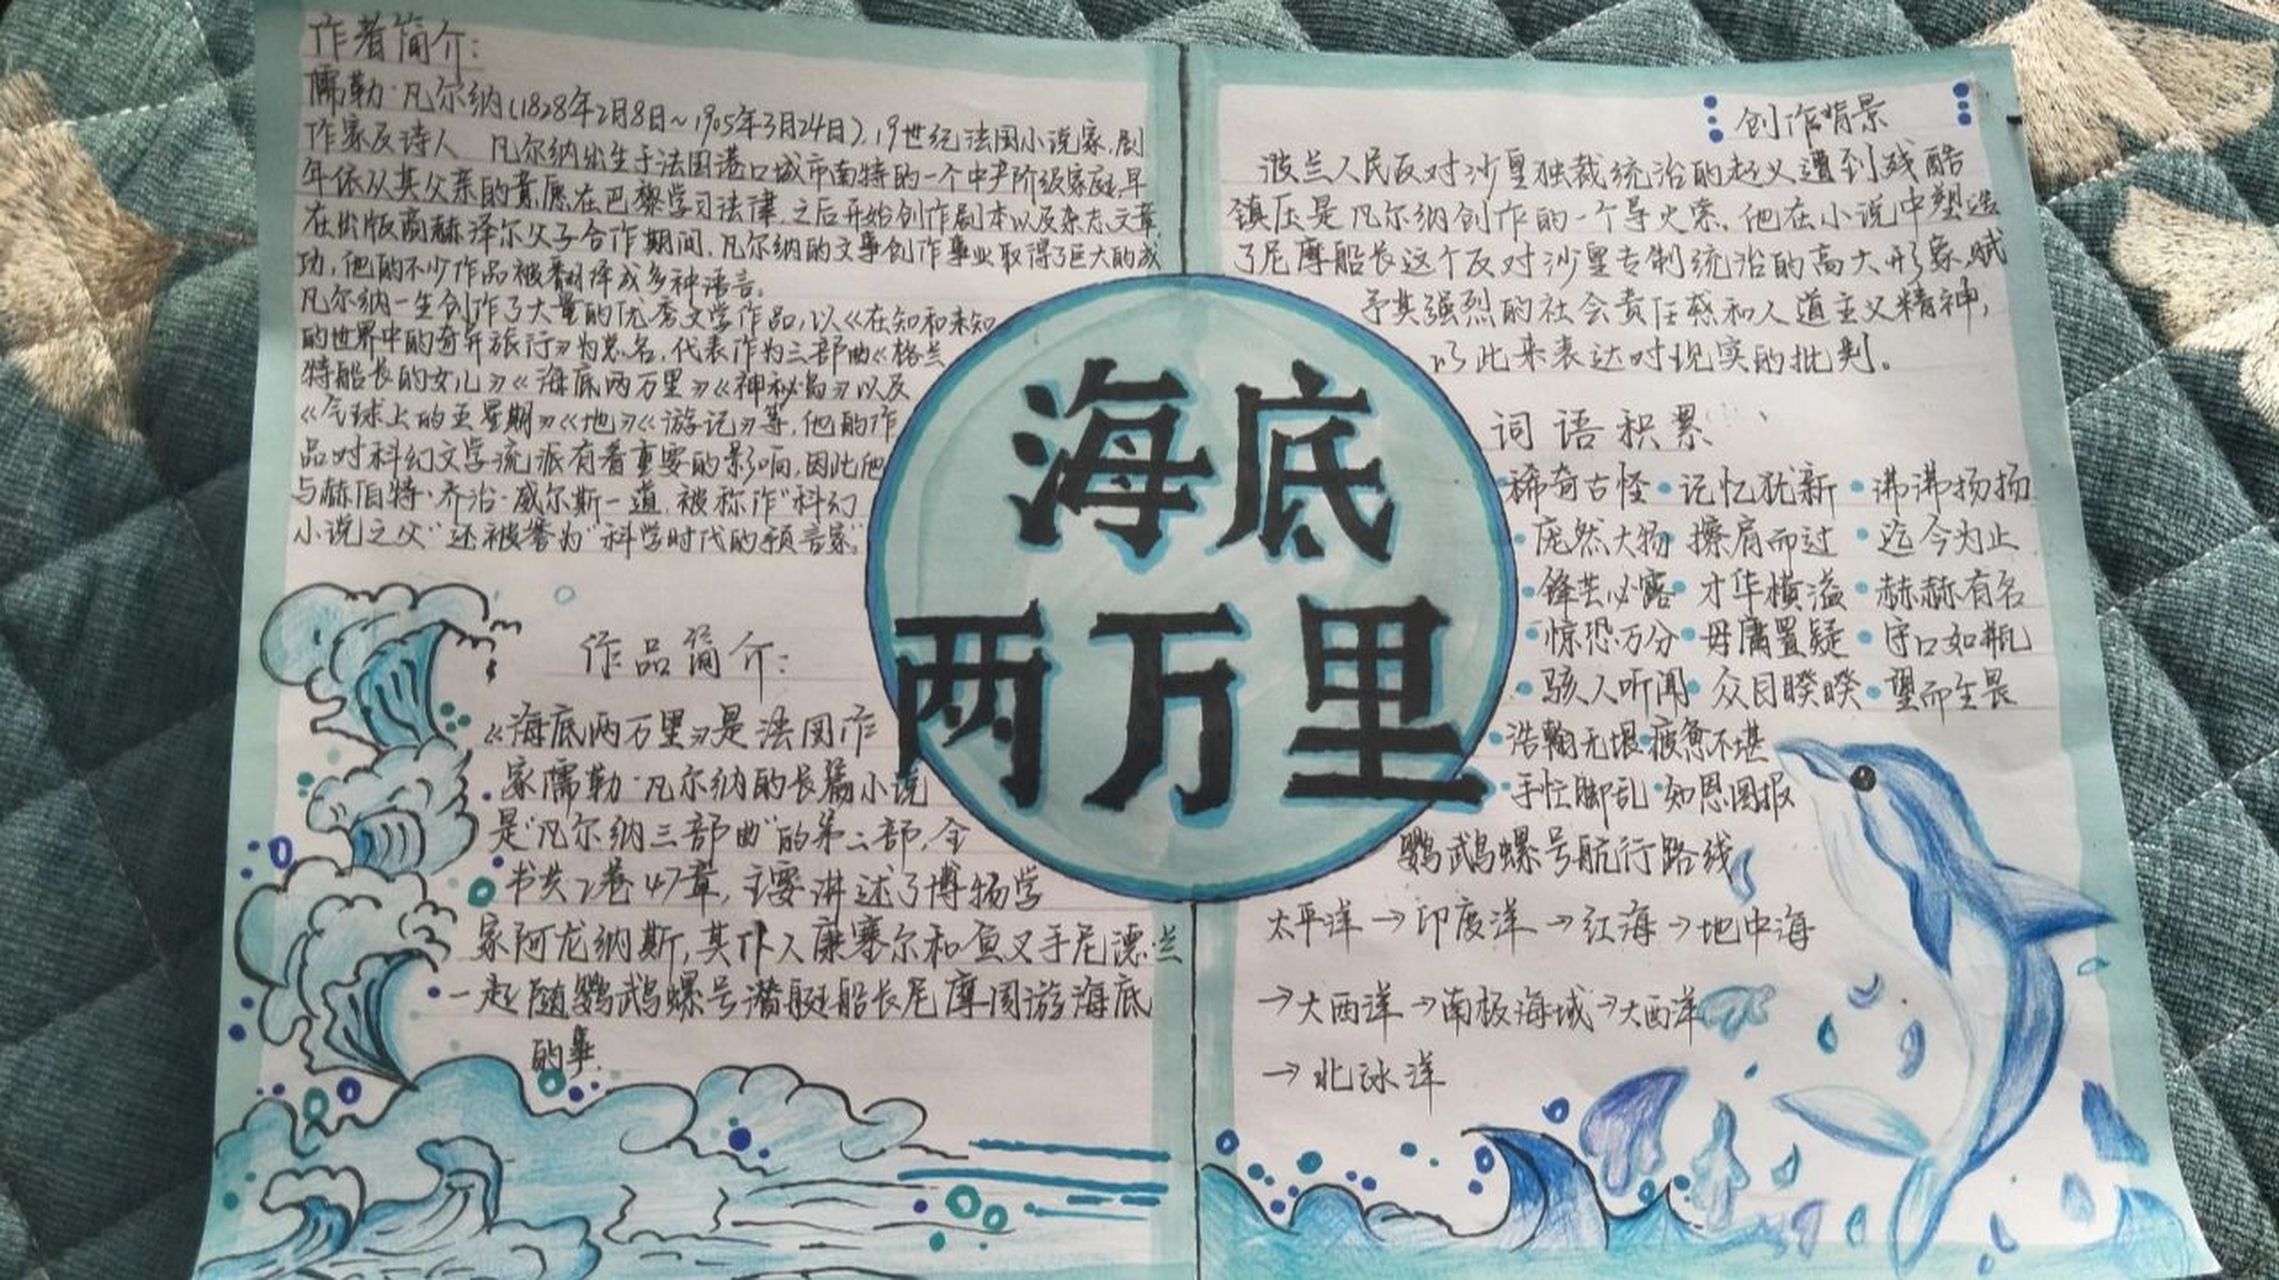 作者简介:
儒勒·凡尔纳(1828年2月8日~1905年3月24日),19世纪法国小说家,剧
作家及诗人 凡尔纳出生于法国港口城市南特的一个中产阶级家庭,早
年依从其父亲的意愿在巴黎学习法律,之后开始创作剧本以及杂志文章,
在出版商赫泽尔父子合作期间,凡尔纳的文学创作事业取得了巨大的成
功,他的不少作品被翻译成多种语言。
凡尔纳一生创作了大量的优秀文学作品,以《在知和未知
的世界中的奇异旅行》为总名,代表作为三部曲《格兰
特船长的女儿》《海底两万里》《神秘岛》以及
《气球上的五星期》《地》《游记》等,他的作
品对科幻文学流派有着重要的影响,因此他
与赫伯特·乔治·威尔斯一道,被称作"科幻
小说之父"还被誉为"科学时代的预言家"。
作品简介:
《海底两万里》是法国作
家儒勒·凡尔纳的长篇小说
是"凡尔纳三部曲"的第二部,全
书共2卷47章,主要讲述了博物学
家阿龙纳斯,其仆人康塞尔和鱼叉手尼德·兰
一起随鹦鹉螺号潜艇船长尼摩周游海底
的事.
海底
两万里
创作背景
波兰人民反对沙皇独裁统治的起义遭到残酷
镇压是凡尔纳创作的一个导火索,他在小说中塑造
了尼摩船长这个反对沙皇专制统治的高大形象,赋
予其强烈的社会责任感和人道主义精神,
以此来表达对现实的批判。
词语积累
稀奇古怪·记忆犹新·沸沸扬扬
·庞然大物 擦肩而过·迄今为止
·锋芒必露·才华横溢·赫赫有名
·惊恐万分·毋庸置疑·守口如瓶
·骇人听闻·众目睽睽·望而生畏
·浩瀚无垠·疲惫不堪
·手忙脚乱·知恩图报
鹦鹉螺号航行路线
太平洋→印度洋→红海→地中海
→大西洋→南极海域→大西洋
→北冰洋